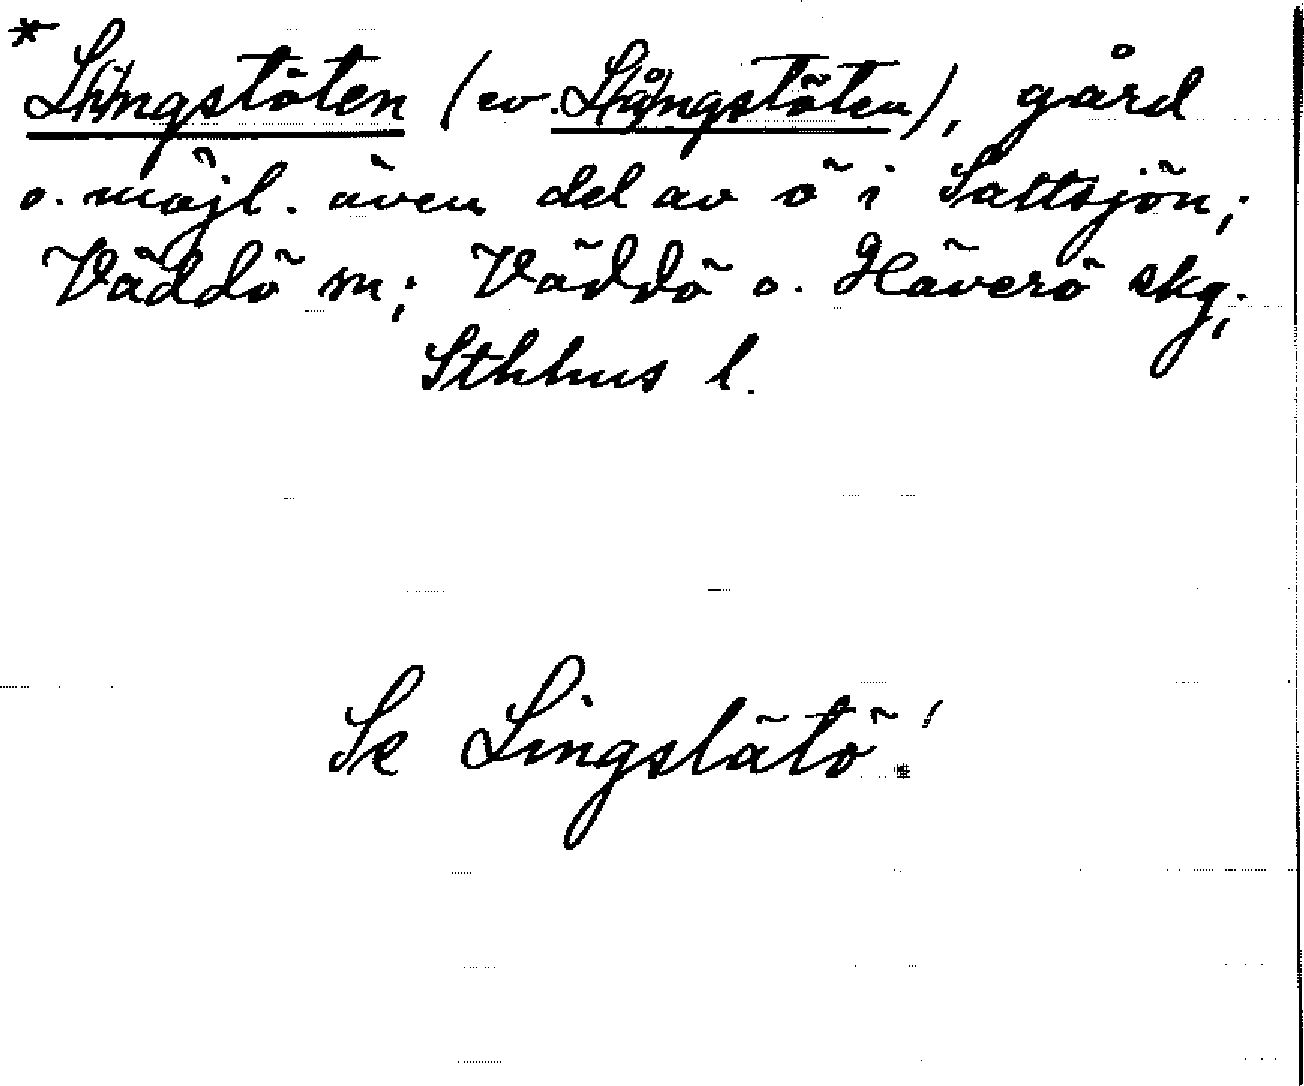 *L(i)ngstöten (ev. L(å)ngstöten), gård
o. möjl. även del av ö i Saltsjön;
Väddö sn; Väddö o. Häverö skg;
Sthhus l.
Se Lingslätö!